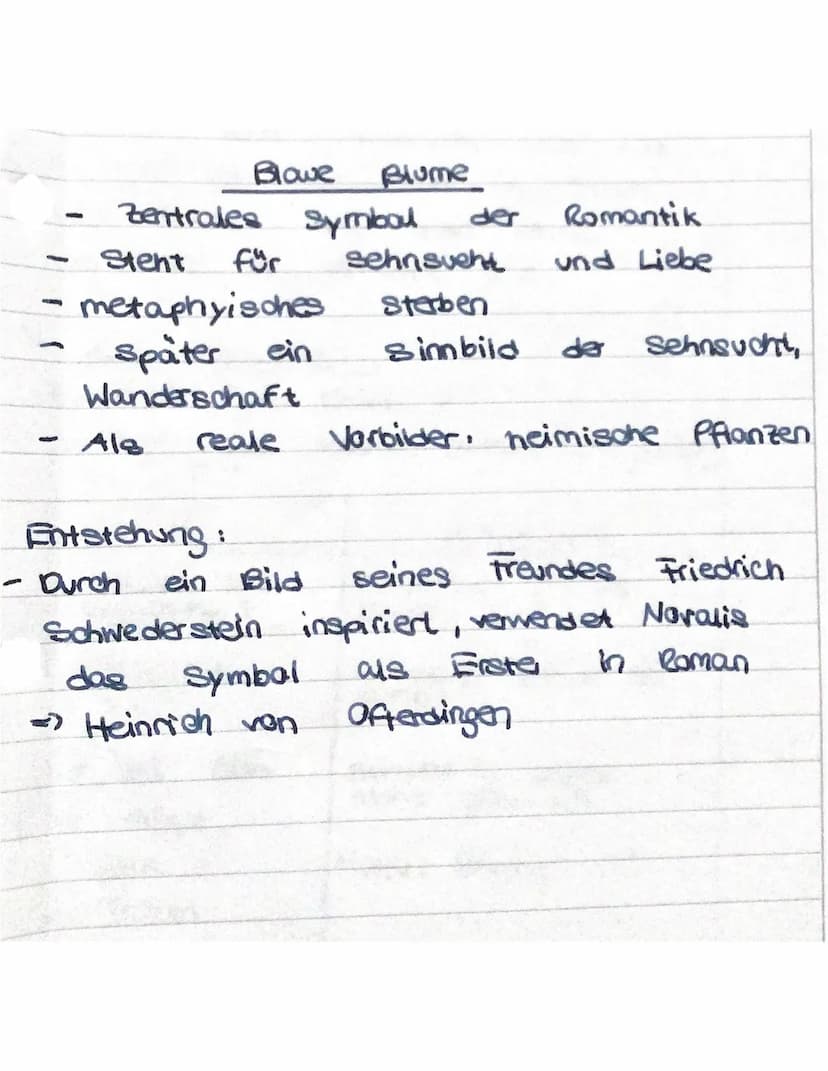 Blaue Blume
- Zentrales Symbol der Romantik
- Steht für Sehnsucht und Liebe
- metaphyisches Sterben
- Später ein Sinnbild der Sehnsucht,
Wanderschaft
- Als reale Vorbilder: heimische Pflanzen
Entstehung:
- Durch ein Bild seines Freundes Friedrich
Schwederstein inspiriert, verwendet Novalis
das Symbol als Erster in Roman
=> Heinrich von Ofterdingen